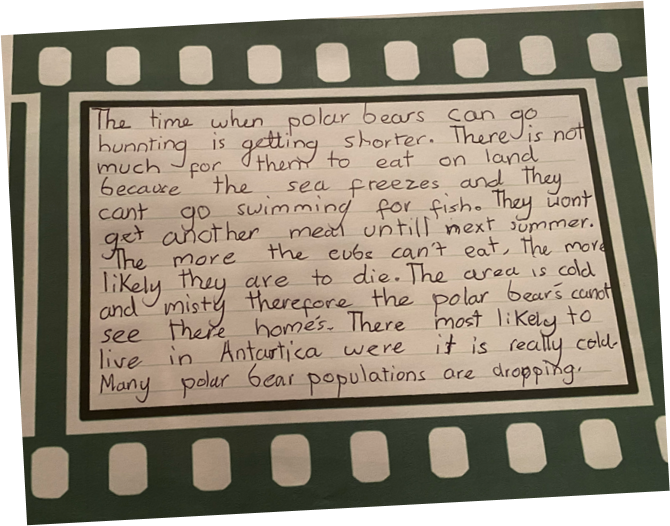 The time when polar bears can go
hunnting is getting shorter. There is not
much for them to eat on land
because the sea freezes and they
cant go swimming for fish. They wont
get another meal untill next summer.
The more the cubs can't eat, the more
likely they are to die. The area is cold
and misty therefore the polar bear's canot
see there home's. There most likely to
live in Antartica were it is really cold.
Many polar bear populations are dropping.